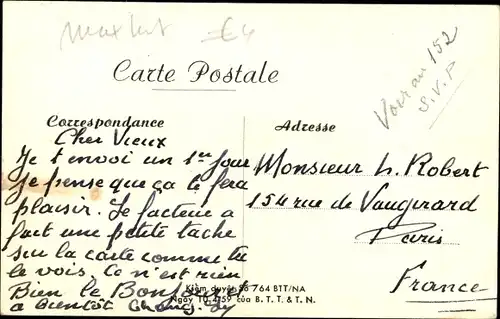 Max hut £4
Voir au 152
S.V.P
Carte Postale
Correspondance
Adresse
Cher Vieux
Je t'envoi un 1er jour
je pense que ça te fera
plaisir. Le facteur a
fait une petite tache
sur la carte comme tu
le vois. Ce n'est rien
Bien le Bonjour et
a bientôt
Monsieur h. Robert
154 rue de Vaugirard
Paris
France
Kiểm duyệt số 764 BTT/NA
Ngày 10.4.59 của B. T. T. & T. N.